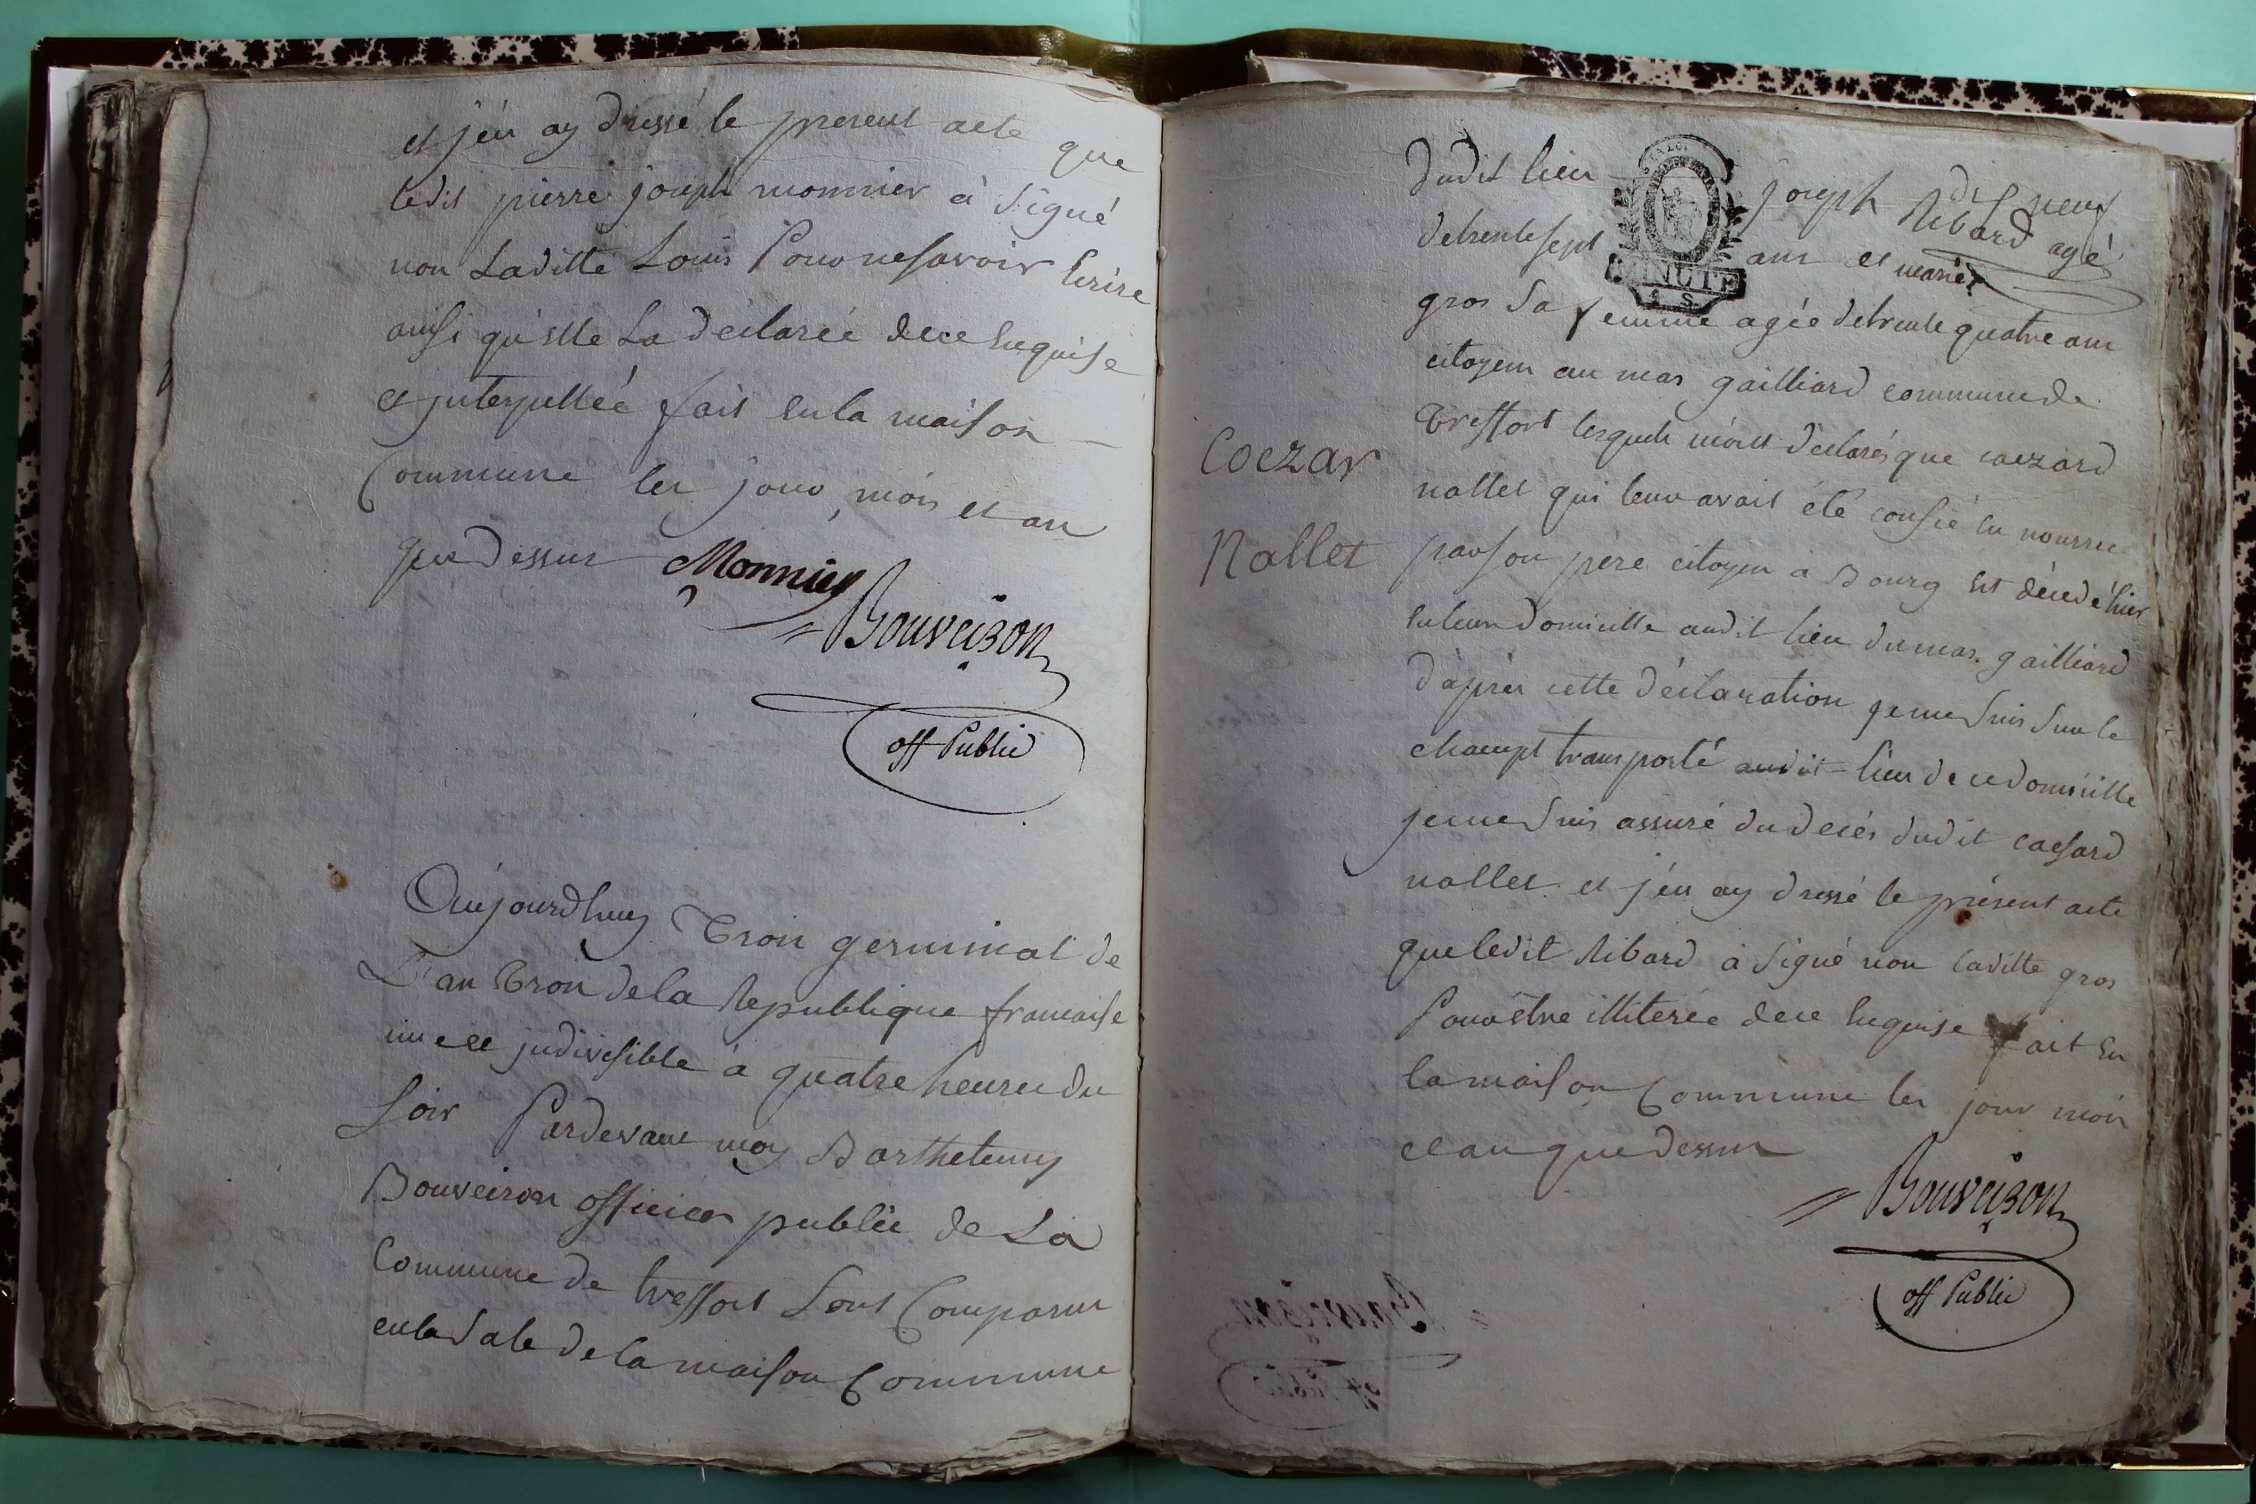 et j'en ay dressé le present acte que
ledit pierre joseph monnier à signé
non Laditte Louis Pour ne savoir Ecrire
ainsi qu'elle La déclarée dece Enquise
et interpellée fait en la maison
Commune les jour, mois et an
que dessus Monnier
Bouveiron
off Public
Aujourdhuy Trois germinal de
L'an Trois de la Republique francaise
une et indivisible à quatre heures du
Soir Pardevant moy Barthelemy
Bouveiron officier public de La
Commune de treffort Sont Comparus
en la Sale de la maison Commune
dix neuf
dudit lieu joseph Ribard agé
de trente sept ans et marie
MINUTE
4 S
gros Sa femme agée de trente quatre ans
citoyens au mas gailliard commune de
Treffort lesquels m'ont déclarés que caezard
Coezar
nallet qui leur avait été confié en nourrice
Nallet
par son père citoyen à Bourg est décedé hier
en leur domicille audit lieu du mas gailliard
d'après cette déclaration je me suis sur le
champt transporté audit lieu de ce domicille
je me suis assuré du decés dudit caesard
nallet et j'en ay dressé le présent acte
que ledit Ribard à signé non laditte gros
Pour être illiterée dece Enquise fait en
la maison Commune les jour mois
et an que dessus
Bouveiron
off Public